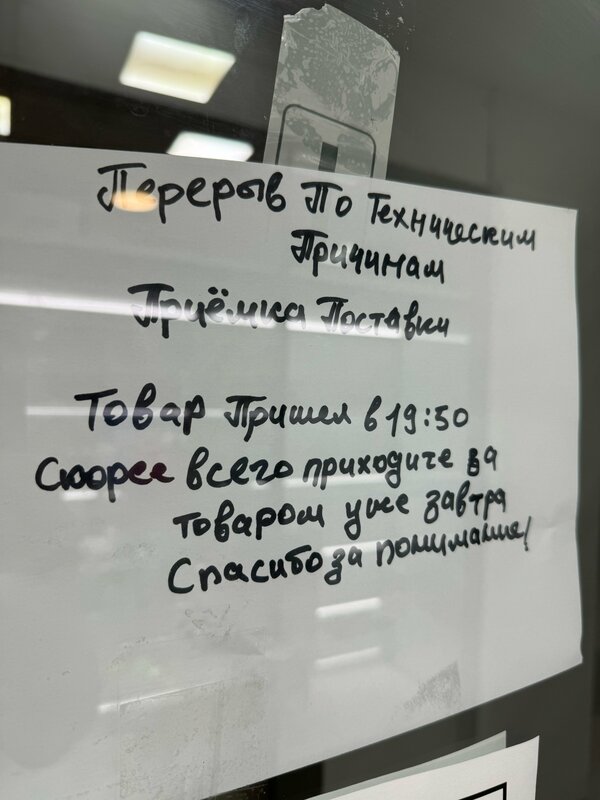 Перерыв По Техническим
Причинам
Приёмка Поставки
Товар Пришел в 19:50
Скорее всего приходите за
товаром уже завтра
Спасибо за понимание!